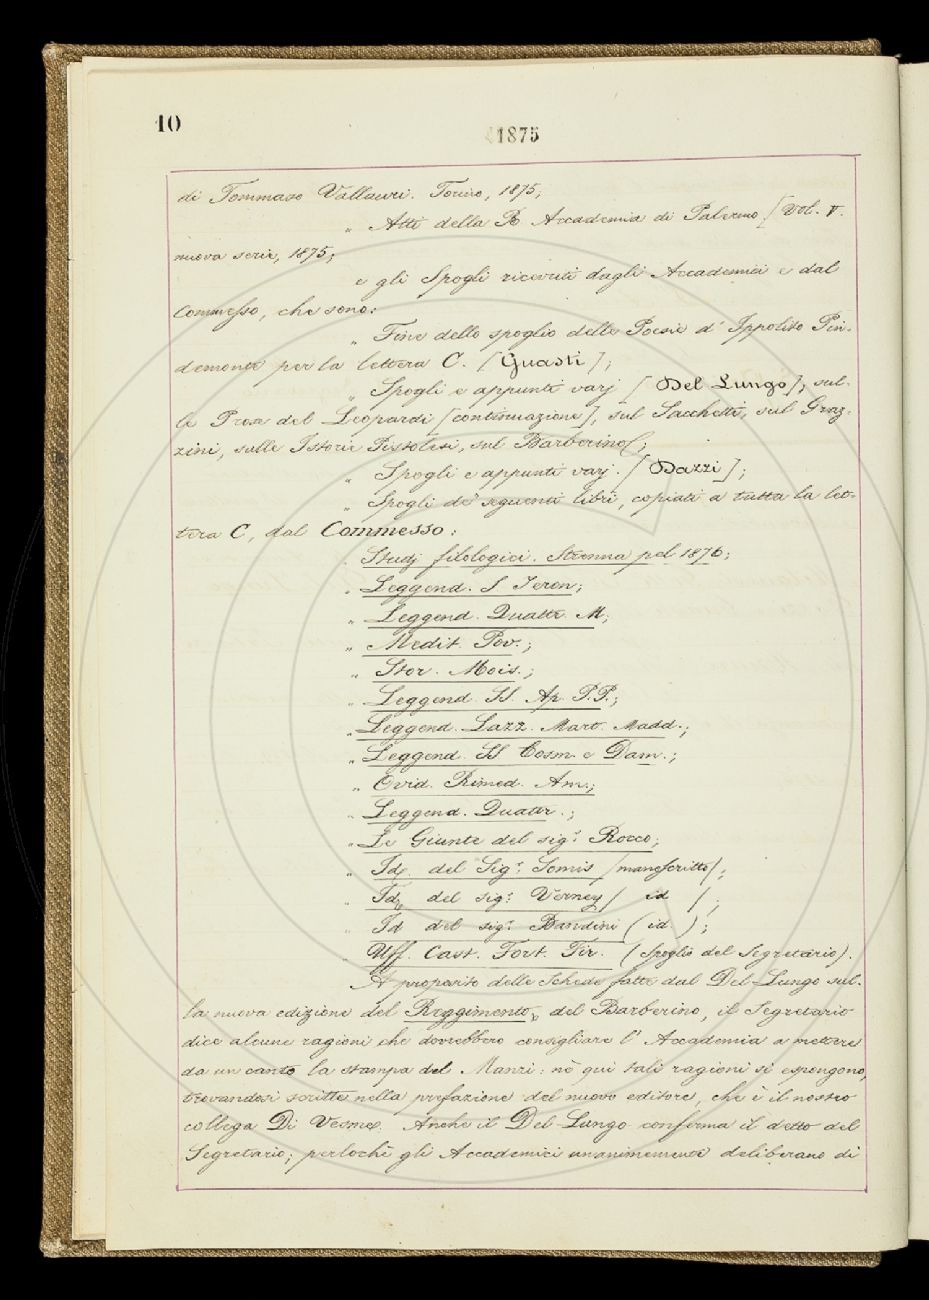 10
1875
di Tommaso Vallauri. Torino, 1875;
" Atti della R. Accademia di Palermo [Vol. V.
nuova serie, 1875;
e gli Spogli ricevuti dagli Accademici e dal
Commesso, che sono:
" Fine dello spoglio delle Poesie d' Ippolito Pin-
demonte per la lettera C. [Guasti];
" Spogli e appunti varj [Del Lungo], sul-
le Prose del Leopardi [continuazione], sul Sacchetti, sul Graz-
zini, sulle Istorie Pistolesi, sul Barberino;
" Spogli e appunti varj. [Dazzi];
" Spogli de' seguenti libri, copiati a tutta la let-
tera C, dal Commesso:
" Studj filologici. Strenna pel 1876;
" Leggend. S Jeron;
" Leggend. Quattr. M;
" Medit. Pov.;
" Stor. Mois.;
" Leggend. SS. Ap. P.P.;
" Leggend. Lazz. Mart. Madd.;
" Leggend. SS Cosm. e Dam.;
" Ovid. Rimed. Am.;
" Leggend. Quattr.;
" Le Giunte del sigr Rocco;
" Id. del Sigr. Somis [manoscritto];
" Id. del sigr. Verney [ id ];
" Id del sigr. Bandini (id.);
" Uff. Cast. Fort. Fir. (Spoglio del Segretario).
A proposito delle Schede fatte dal Del-Lungo sul-
la nuova edizione del Reggimento, del Barberino, il Segretario
dice alcune ragioni che dovrebbero consigliare l' Accademia a mettere
da un canto la stampa del Manzi: nè qui tali ragioni si espongono,
trovandosi scritte nella prefazione del nuovo editore, che è il nostro
collega Di Vesme. Anche il Del-Lungo conferma il detto del
Segretario; perlochè gli Accademici unanimemente deliberano di